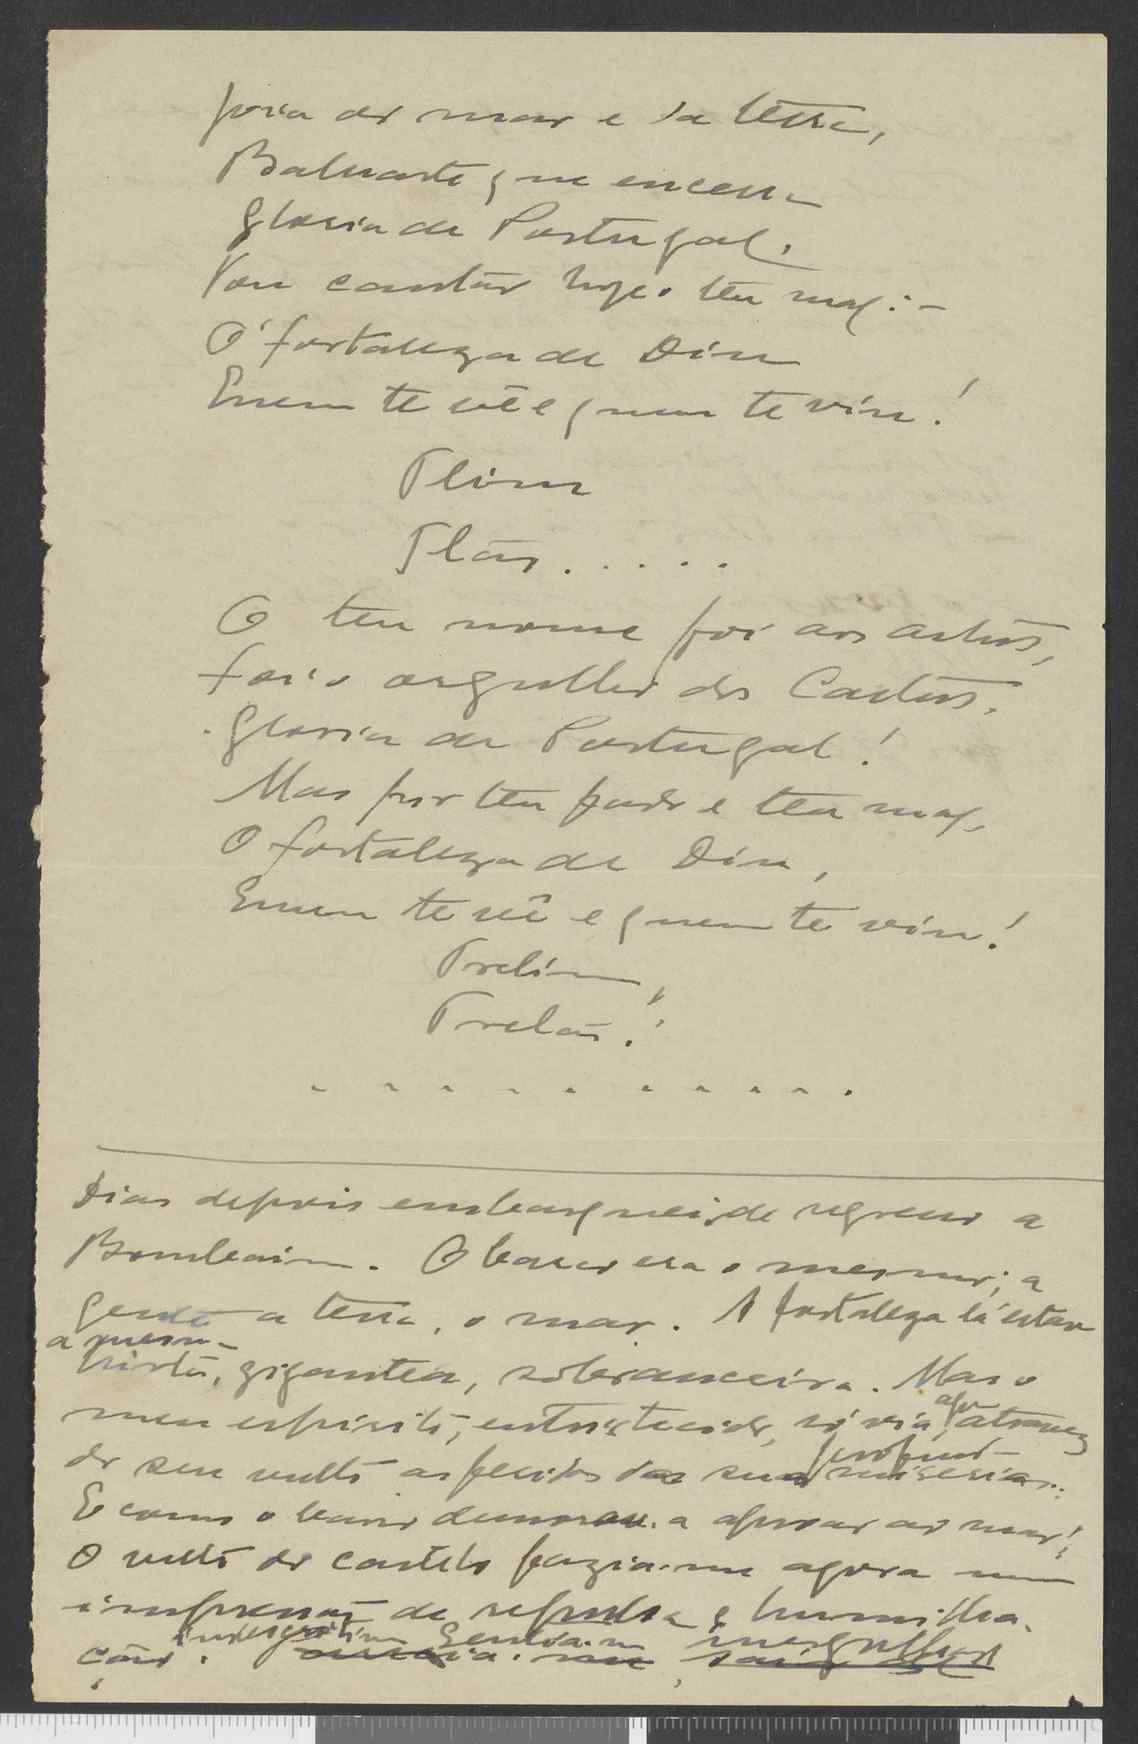 joia do mar e da terra,
Baluarte que encerra
Gloria de Portugal,
Vou cantar hoje o teu mal: -
O' fortaleza de Diu
Quem te vê e quem te viu!
Tlim
Tlão.....
O teu nome foi aos astros,
foi o orgulho dos Castros,
Gloria de Portugal!
Mas por teu fado e teu mal,
O fortaleza de Diu,
Quem te vê e quem te viu!
Trelim,
Trelão!
. . . . . . . . . .
Dias depois embarquei de regresso a
Bombaim. O barco era o mesmo; a
gente a terra, o mar. A fortaleza lá estava
a mesma
hirta, gigantea, sobranceira. Mas o
meu espirito, entristecido, só via, através
do seu vulto as feridas da sua profunda miseria.
E como o barco demorou a aproar ao mar!
O vulto do castelo fazia-me agora uma
impressão de repulsa e humilha-
ção. Sentia-me